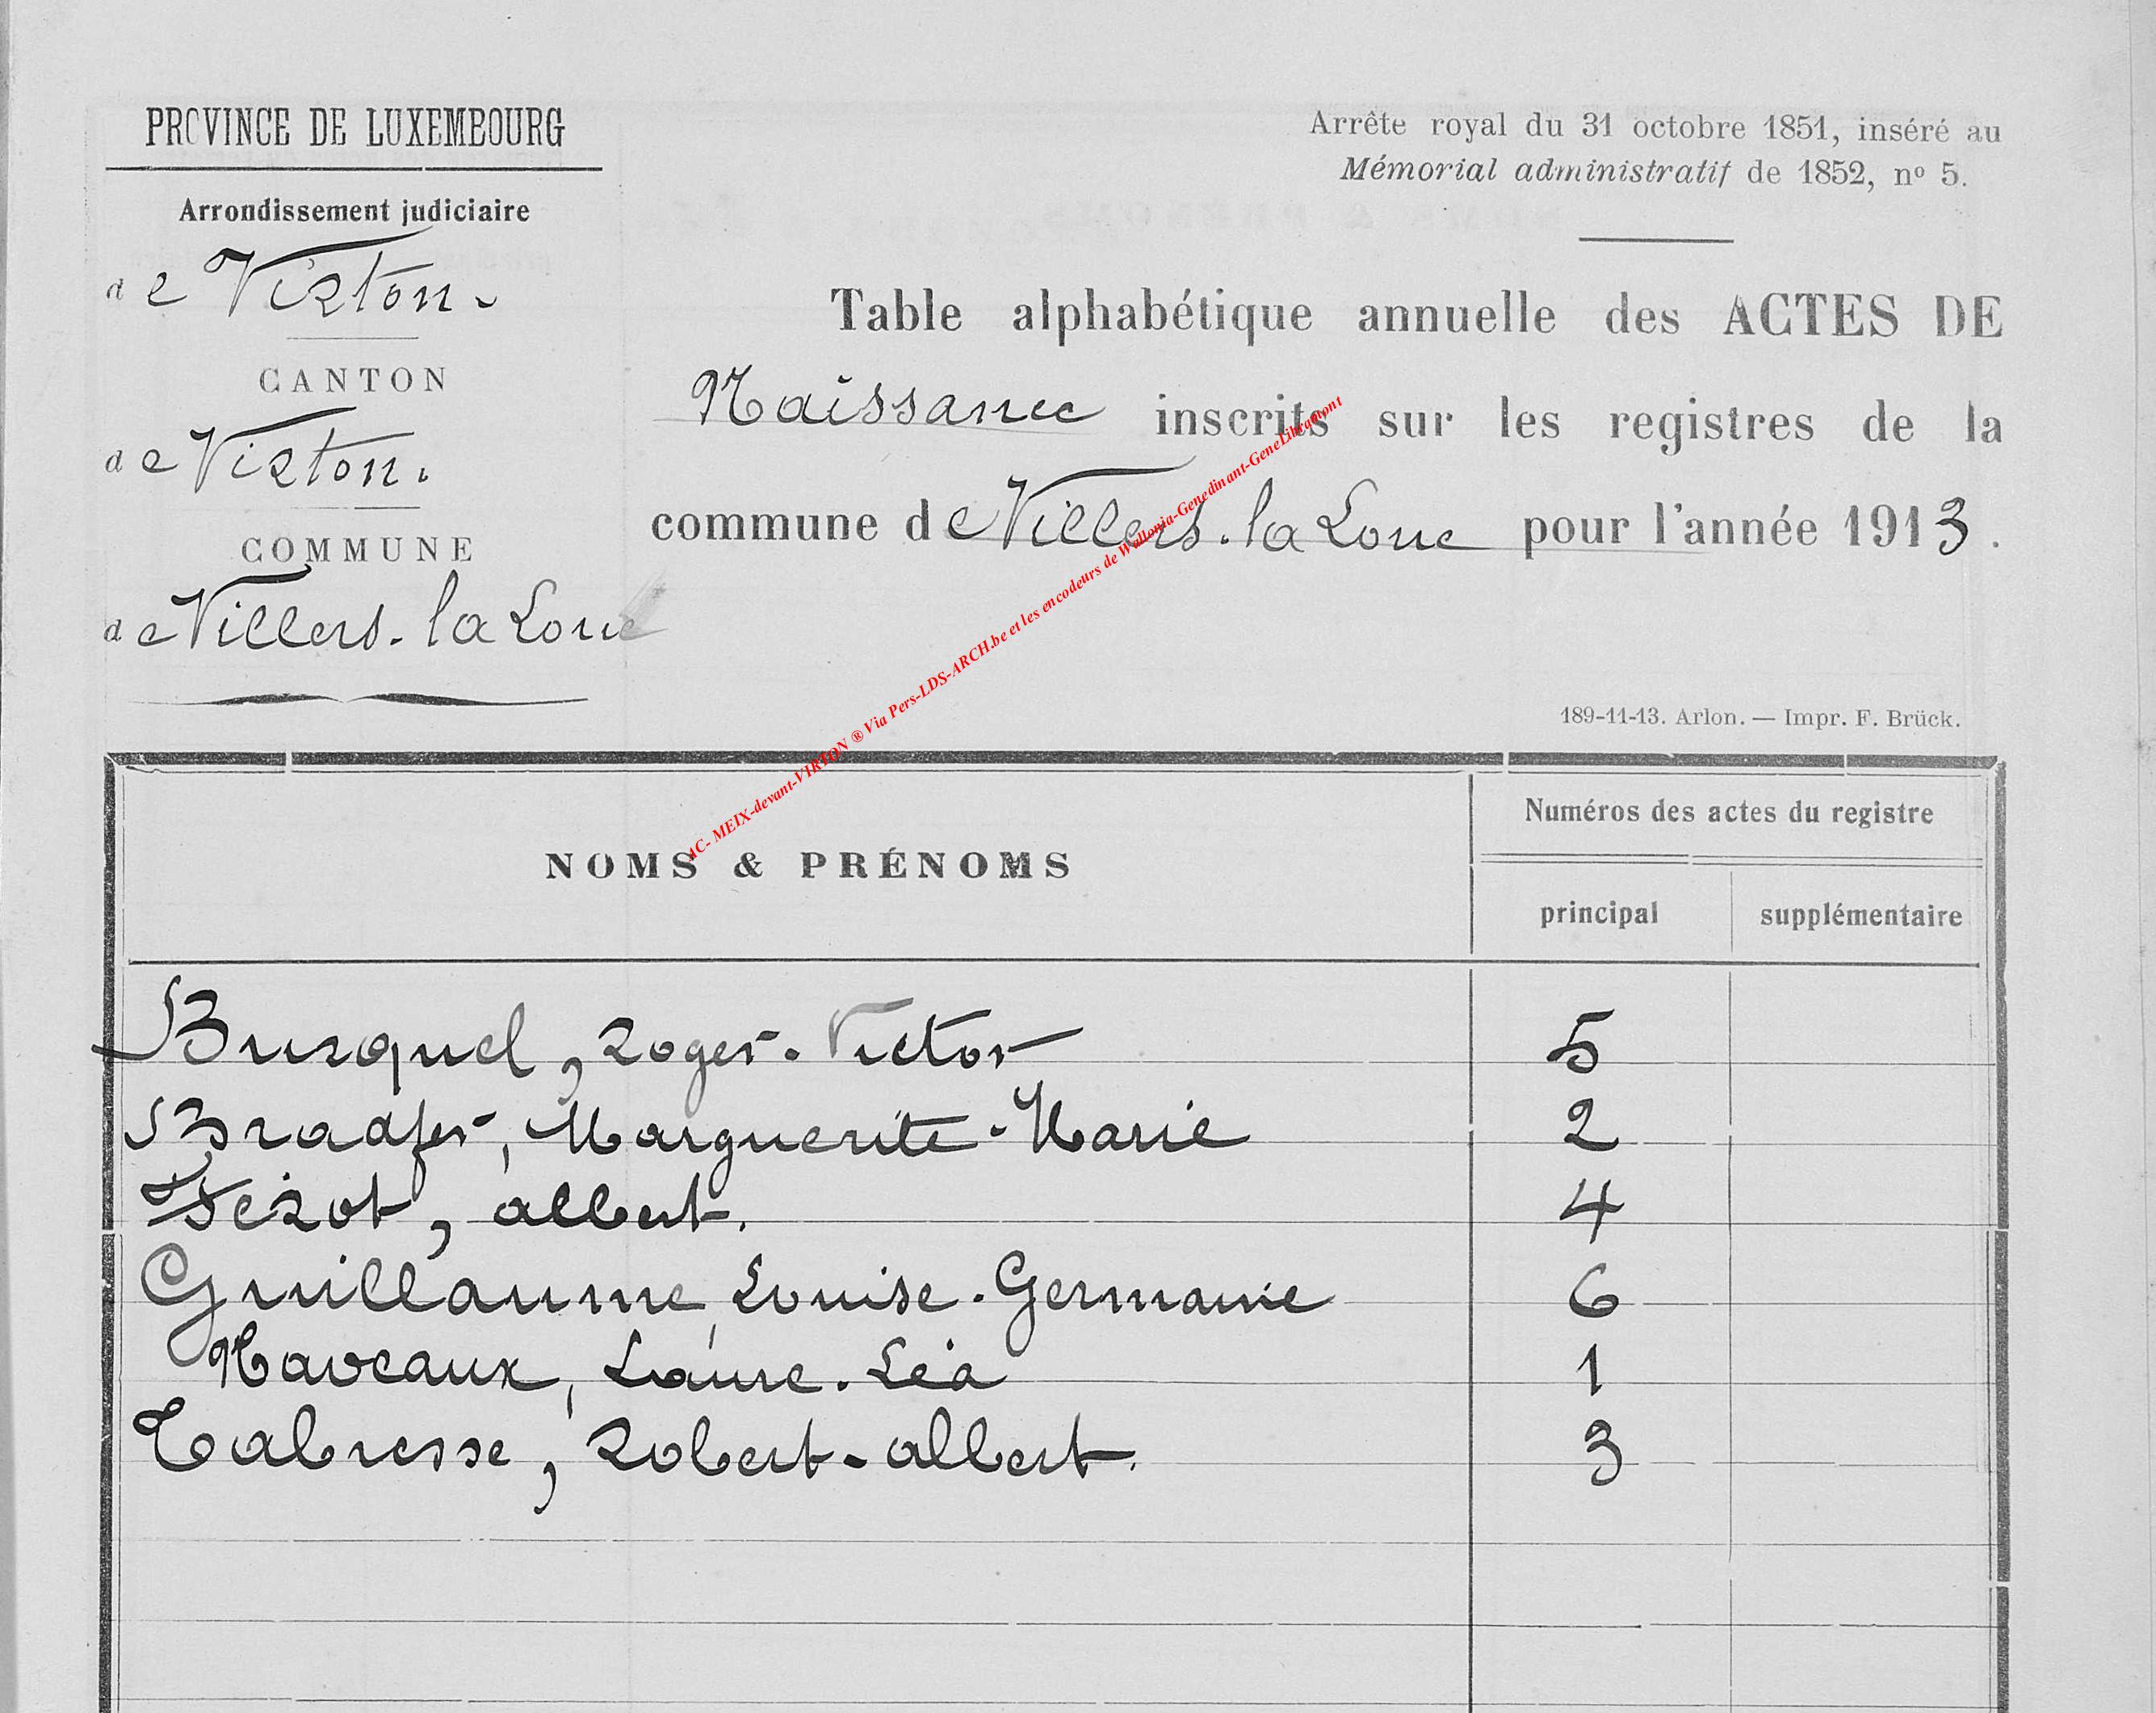 PROVINCE DE LUXEMBOURG
Arrondissement judiciaire
de Virton.
CANTON
de Virton.
COMMUNE
de Villers-la Loue
Arrête royal du 31 octobre 1851, inséré au
Mémorial administratif de 1852, nº 5.
Table alphabétique annuelle des ACTES DE
Naissance inscrits sur les registres de la
commune de Villers-la Loue pour l'année 1913.
AC- MEIX-devant-VIRTON ® Via Pers-LDS-ARCH.be et les encodeurs de Wallonia-Genedinant-GeneLibramont
189-11-13. Arlon. — Impr. F. Brück.
NOMS & PRÉNOMS
Numéros des actes du registre
principal supplémentaire
Burquel, Roger-Victor 5
Bradfer, Marguerite-Marie 2
Fézot, Albert. 4
Guillaume, Louise-Germaine 6
Naveaux, Laure-Léa 1
Tabresse, Robert-Albert. 3